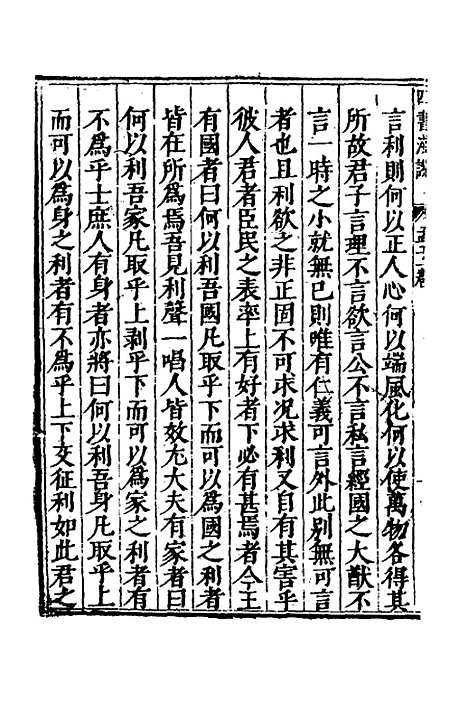 言利則何以正人心何以端風化何以使萬物各得其
所故君子言理不言欲言公不言私言經國之大猷不
言一時之小就無已則唯有仁義可言外此別無可言
者也且利欲之非正固不可求况求利又自有其害乎
彼人君者臣民之表率上有好者下必有甚焉者今王
有國者曰何以利吾國凡取乎下而可以爲國之利者
皆在所爲焉吾見利聲一唱人皆效尤大夫有家者曰
何以利吾家凡取乎上剥乎下而可以爲家之利者有
不爲乎士庶人有身者亦將曰何以利吾身凡取乎上
而可以爲身之利者有不爲乎上下交征利如此君之